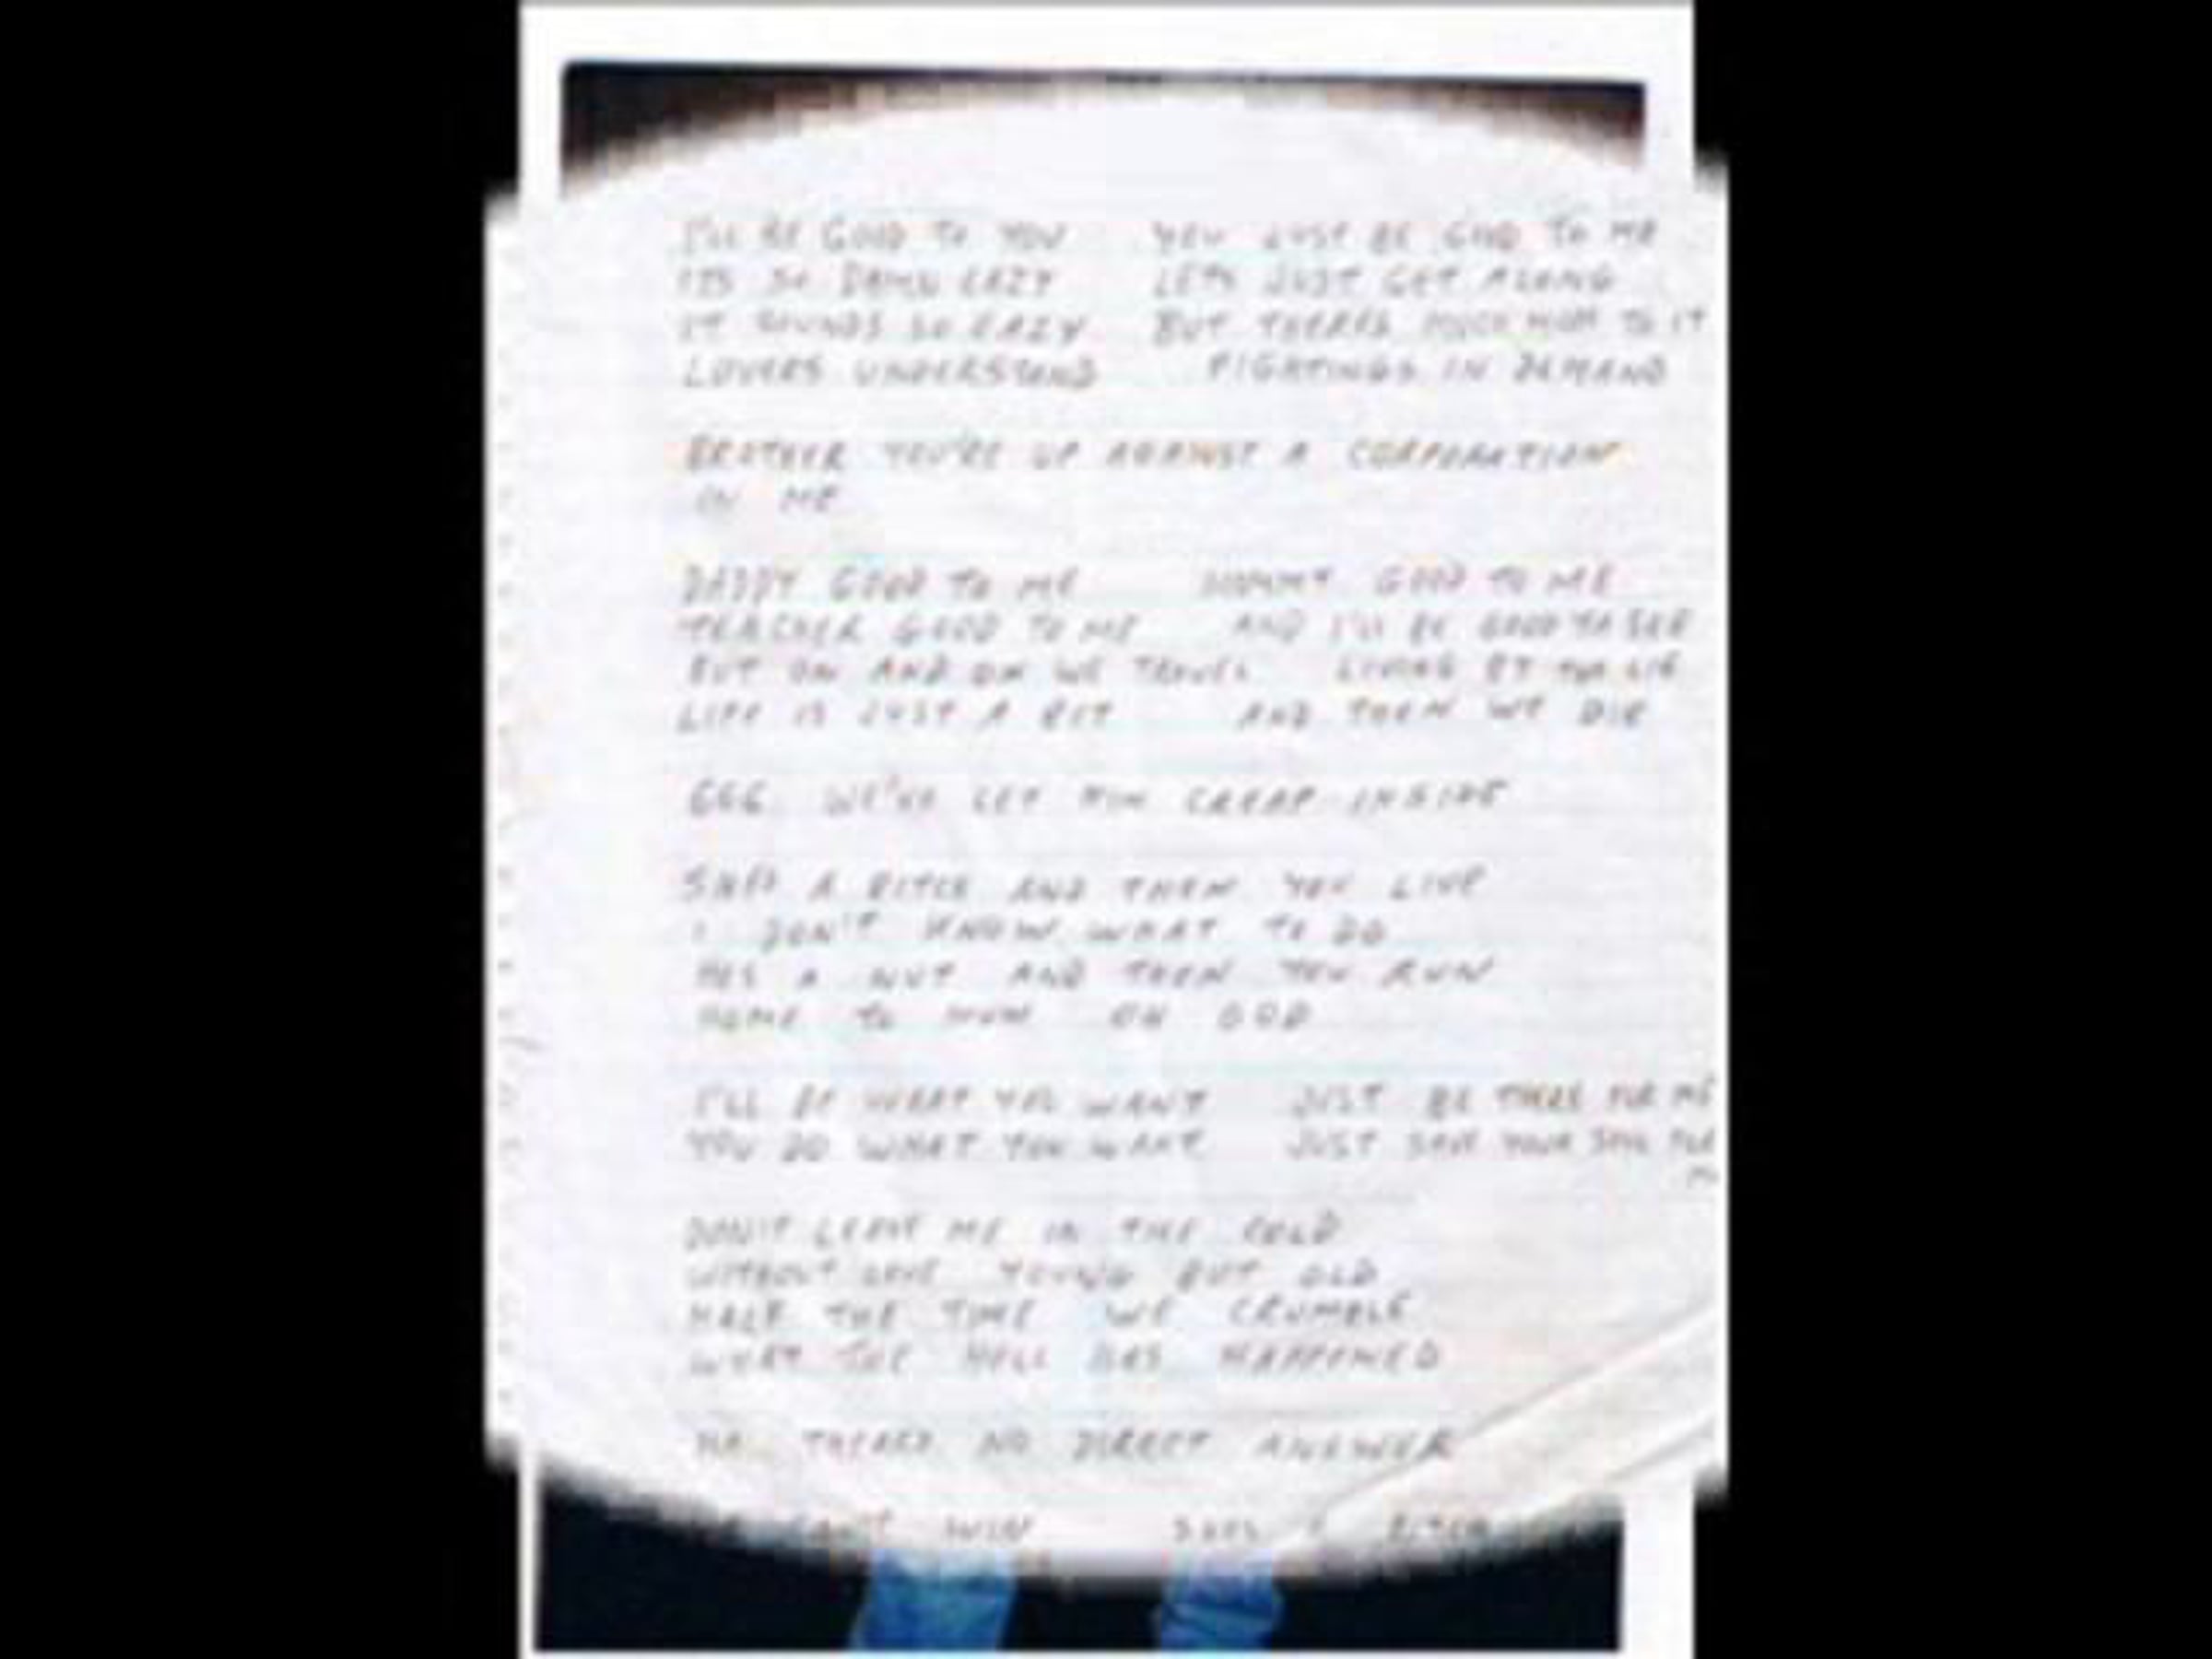 I'LL BE GOOD TO YOU YOU JUST BE GOOD TO ME
ITS SO DAMN EAZY LETS JUST GET ALONG
IT SOUNDS SO EAZY BUT THERES MUCH MORE TO IT
LOVERS UNDERSTAND FIGHTINGS IN DEMAND
BROTHER YOU'RE UP AGAINST A CORPORATION
IN ME
DADDY GOOD TO ME MOMMY GOOD TO ME
TEACHER GOOD TO ME AND I'LL BE GOOD TO SEE
BUT ON AND ON WE TRAVEL LIVING BY THE LIE
LIFE IS JUST A BIT AND THEN WE DIE
666 WE'VE LET HIM CREAP INSIDE
SHES A BITCH AND THEN YOU LIVE
I DON'T KNOW WHAT TO DO
HES A NUT AND THEN YOU RUN
HOME TO MUM OH GOD
I'LL BE WHAT YOU WANT JUST BE THERE FOR ME
YOU DO WHAT YOU WANT JUST SAVE YOUR SOUL FOR
DON'T LEAVE ME IN THE COLD
WITHOUT LOVE YOUNG BUT OLD
HALF THE TIME WE CRUMBLE
WHAT THE HELL HAS HAPPENED
HA THERES NO DIRECT ANSWER
CAN'T WIN BITCH